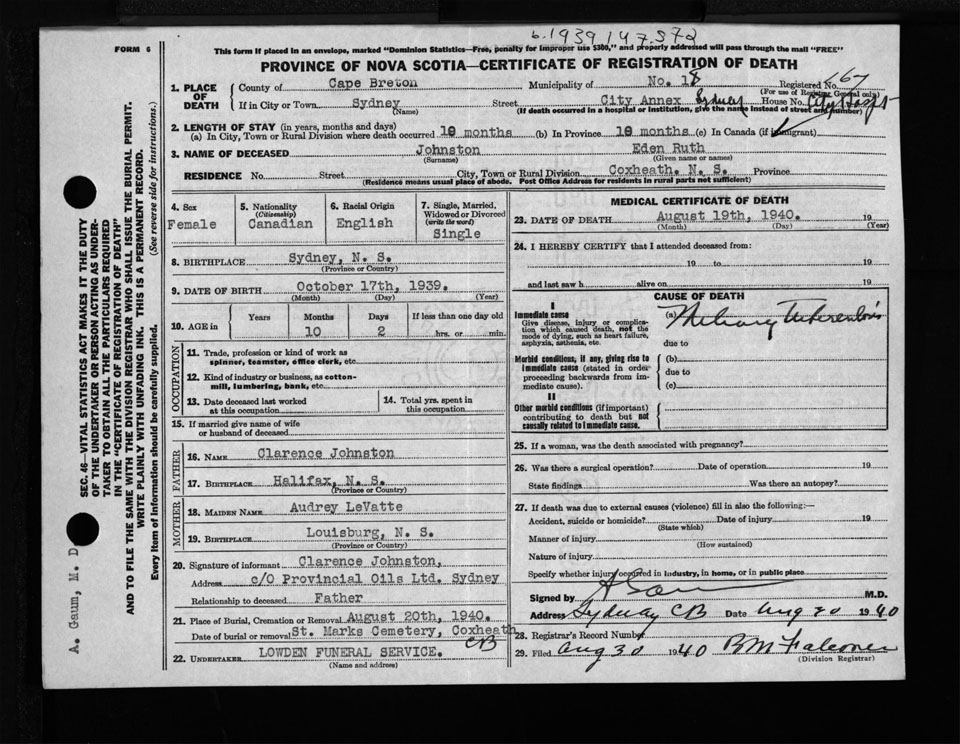 b. 1939 147.572
FORM 6
This form if placed in an envelope, marked "Dominion Statistics—Free, penalty for improper use $300," and properly addressed will pass through the mail "FREE"
PROVINCE OF NOVA SCOTIA—CERTIFICATE OF REGISTRATION OF DEATH
1. PLACE OF DEATH
County of Cape Breton Municipality of No. 18 Registered No. 667
(For use of Registrar General only)
If in City or Town Sydney Street City Annex Sydney House No. City Hospt
(Name) (If death occurred in a hospital or institution, give the name instead of street and number)
2. LENGTH OF STAY (in years, months and days)
(a) In City, Town or Rural Division where death occurred 10 months (b) In Province 10 months (c) In Canada (if immigrant)
3. NAME OF DECEASED Johnston Eden Ruth
(Surname) (Given name or names)
RESIDENCE No. Street City, Town or Rural Division Coxheath. N. S. Province
(Residence means usual place of abode. Post Office Address for residents in rural parts not sufficient)
SEC. 46—VITAL STATISTICS ACT MAKES IT THE DUTY
OF THE UNDERTAKER OR PERSON ACTING AS UNDER-
TAKER TO OBTAIN ALL THE PARTICULARS REQUIRED
IN THE "CERTIFICATE OF REGISTRATION OF DEATH"
AND TO FILE THE SAME WITH THE DIVISION REGISTRAR WHO SHALL ISSUE THE BURIAL PERMIT.
WRITE PLAINLY WITH UNFADING INK. THIS IS A PERMANENT RECORD.
Every item of information should be carefully supplied. (See reverse side for instructions.)
A. Gaum, M. D
4. Sex
Female
5. Nationality
(Citizenship)
Canadian
6. Racial Origin
English
7. Single, Married,
Widowed or Divorced
(write the word)
Single
8. BIRTHPLACE Sydney, N. S.
(Province or Country)
9. DATE OF BIRTH October 17th, 1939.
(Month) (Day) (Year)
10. AGE in
Years Months Days If less than one day old
10 2 hrs. or min.
OCCUPATION
11. Trade, profession or kind of work as
spinner, teamster, office clerk, etc.
12. Kind of industry or business, as cotton-
mill, lumbering, bank, etc.
13. Date deceased last worked
at this occupation
14. Total yrs. spent in
this occupation
15. If married give name of wife
or husband of deceased
FATHER
16. NAME Clarence Johnston
17. BIRTHPLACE Halifax, N. S.
(Province or Country)
MOTHER
18. MAIDEN NAME Audrey LeVatte
19. BIRTHPLACE Louisburg, N. S.
(Province or Country)
20. Signature of informant Clarence Johnston,
Address c/O Provincial Oils Ltd. Sydney
Relationship to deceased Father
21. Place of Burial, Cremation or Removal August 20th, 1940.
Date of burial or removal St. Marks Cemetery, Coxheath
CB
22. UNDERTAKER LOWDEN FUNERAL SERVICE.
(Name and address)
MEDICAL CERTIFICATE OF DEATH
23. DATE OF DEATH August 19th, 1940. 19
(Month) (Day) (Year)
24. I HEREBY CERTIFY that I attended deceased from:
19 to 19
and last saw h alive on 19
CAUSE OF DEATH
I
Immediate cause
Give disease, injury or complica-
tion which caused death, not the
mode of dying, such as heart failure,
asphyxia, asthenia, etc.
(a) Miliary Tuberculosis
due to
Morbid conditions, if any, giving rise to
immediate cause (stated in order
proceeding backwards from im-
mediate cause).
(b)
due to
(c)
II
Other morbid conditions (if important)
contributing to death but not
causally related to immediate cause.
25. If a woman, was the death associated with pregnancy?
26. Was there a surgical operation? Date of operation 19
State findings Was there an autopsy?
27. If death was due to external causes (violence) fill in also the following:—
Accident, suicide or homicide? Date of injury 19
(State which)
Manner of injury
(How sustained)
Nature of injury
Specify whether injury occurred in industry, in home, or in public place
Signed by M.D.
Address Sydney CB Date Aug 30 1940
28. Registrar's Record Number
29. Filed Aug 30 1940 B M Falconer
(Division Registrar)